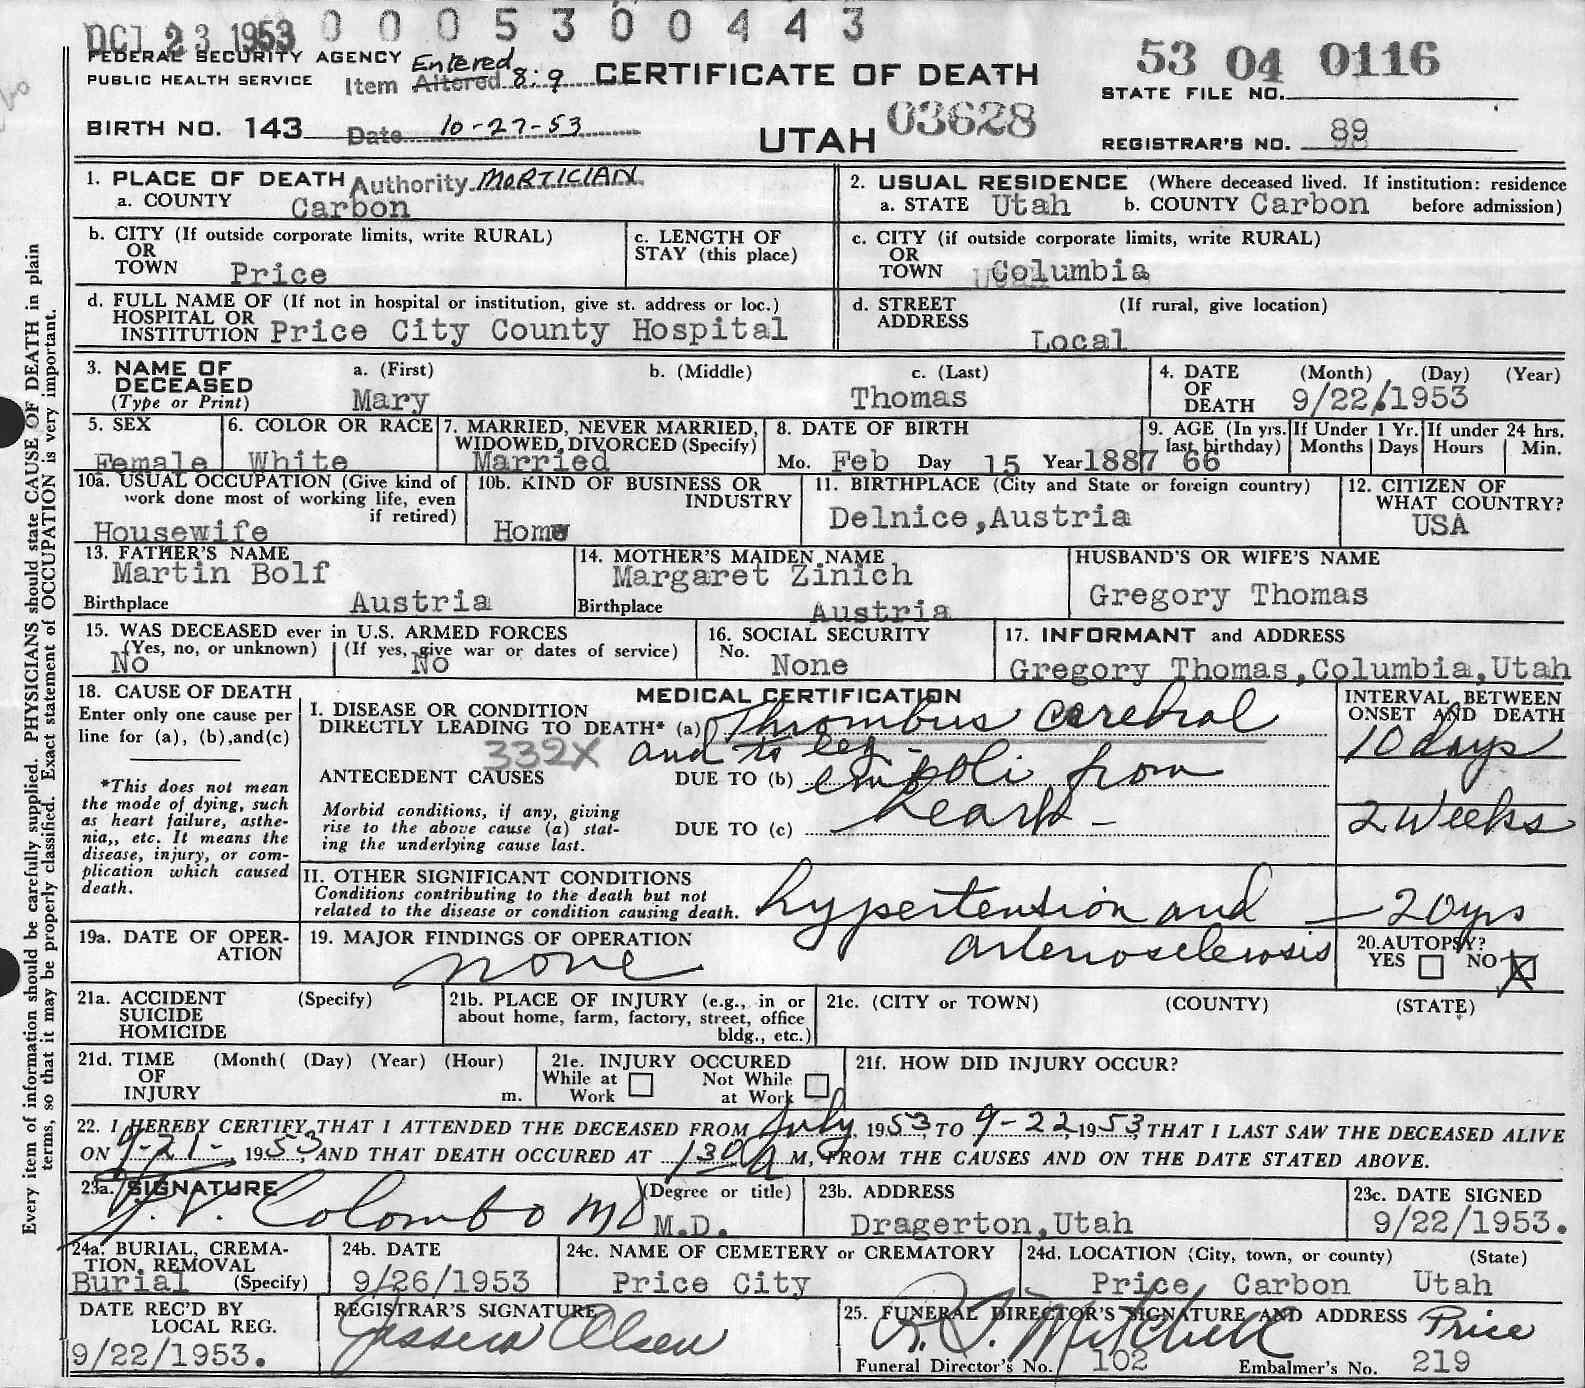 OCT 23 1953 0 0 0 5 3 0 0 4 4 3
FEDERAL SECURITY AGENCY
PUBLIC HEALTH SERVICE
Entered
Item Altered 8:9
CERTIFICATE OF DEATH
53 04 0116
STATE FILE NO.
BIRTH NO. 143
Date 10-27-53
UTAH
03628
REGISTRAR'S NO. 89
1. PLACE OF DEATH Authority MORTICIAN
a. COUNTY Carbon
2. USUAL RESIDENCE (Where deceased lived. If institution: residence
a. STATE Utah b. COUNTY Carbon before admission)
b. CITY (If outside corporate limits, write RURAL)
OR
TOWN Price
c. LENGTH OF
STAY (this place)
c. CITY (if outside corporate limits, write RURAL)
OR
TOWN Columbia
d. FULL NAME OF (If not in hospital or institution, give st. address or loc.)
HOSPITAL OR
INSTITUTION Price City County Hospital
d. STREET (If rural, give location)
ADDRESS
Local
3. NAME OF
DECEASED
(Type or Print)
a. (First) b. (Middle) c. (Last)
Mary Thomas
4. DATE (Month) (Day) (Year)
OF
DEATH 9/22/1953
5. SEX
Female
6. COLOR OR RACE
White
7. MARRIED, NEVER MARRIED,
WIDOWED, DIVORCED (Specify)
Married
8. DATE OF BIRTH
Mo. Feb Day 15 Year 1887
9. AGE (In yrs.
last birthday)
66
If Under 1 Yr.
Months Days
If under 24 hrs.
Hours Min.
10a. USUAL OCCUPATION (Give kind of
work done most of working life, even
if retired)
Housewife
10b. KIND OF BUSINESS OR
INDUSTRY
Home
11. BIRTHPLACE (City and State or foreign country)
Delnice,Austria
12. CITIZEN OF
WHAT COUNTRY?
USA
13. FATHER'S NAME
Martin Bolf
Birthplace Austria
14. MOTHER'S MAIDEN NAME
Margaret Zinich
Birthplace Austria
HUSBAND'S OR WIFE'S NAME
Gregory Thomas
15. WAS DECEASED ever in U.S. ARMED FORCES
(Yes, no, or unknown) (If yes, give war or dates of service)
No No
16. SOCIAL SECURITY
No. None
17. INFORMANT and ADDRESS
Gregory Thomas,Columbia,Utah
18. CAUSE OF DEATH
Enter only one cause per
line for (a), (b),and(c)
*This does not mean
the mode of dying, such
as heart failure, asthe-
nia,, etc. It means the
disease, injury, or com-
plication which caused
death.
MEDICAL CERTIFICATION
I. DISEASE OR CONDITION
DIRECTLY LEADING TO DEATH* (a) Thrombus cerebral
332X and to leg -
ANTECEDENT CAUSES DUE TO (b) emboli from
Morbid conditions, if any, giving
rise to the above cause (a) stat-
ing the underlying cause last.
DUE TO (c) heart -
INTERVAL BETWEEN
ONSET AND DEATH
10 days
2 weeks
II. OTHER SIGNIFICANT CONDITIONS
Conditions contributing to the death but not
related to the disease or condition causing death.
hypertension and — 20 yrs
arteriosclerosis
19a. DATE OF OPER-
ATION
19. MAJOR FINDINGS OF OPERATION
none
20. AUTOPSY?
YES NO X
21a. ACCIDENT (Specify)
SUICIDE
HOMICIDE
21b. PLACE OF INJURY (e.g., in or
about home, farm, factory, street, office
bldg., etc.)
21c. (CITY or TOWN) (COUNTY) (STATE)
21d. TIME (Month( (Day) (Year) (Hour)
OF
INJURY m.
21e. INJURY OCCURED
While at Not While
Work at Work
21f. HOW DID INJURY OCCUR?
22. I HEREBY CERTIFY THAT I ATTENDED THE DECEASED FROM July, 1953, TO 9-22, 1953, THAT I LAST SAW THE DECEASED ALIVE
ON 9-21-, 1953, AND THAT DEATH OCCURED AT 130 A M, FROM THE CAUSES AND ON THE DATE STATED ABOVE.
23a. SIGNATURE (Degree or title)
F. V. Colombo MD M.D.
23b. ADDRESS
Dragerton,Utah
23c. DATE SIGNED
9/22/1953.
24a. BURIAL, CREMA-
TION, REMOVAL
Burial (Specify)
24b. DATE
9/26/1953
24c. NAME OF CEMETERY or CREMATORY
Price City
24d. LOCATION (City, town, or county) (State)
Price Carbon Utah
DATE REC'D BY
LOCAL REG.
9/22/1953.
REGISTRAR'S SIGNATURE
Jessica Olsen
25. FUNERAL DIRECTOR'S SIGNATURE AND ADDRESS Price
Mitchell
Funeral Director's No. 102 Embalmer's No. 219
Every item of information should be carefully supplied. PHYSICIANS should state CAUSE OF DEATH in plain
terms, so that it may be properly classified. Exact statement of OCCUPATION is very important.